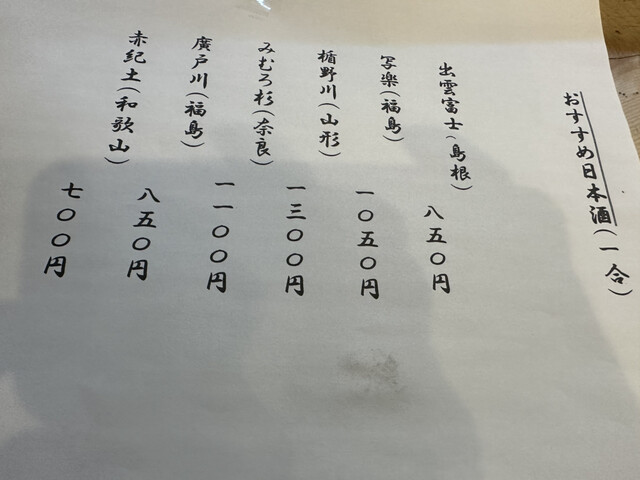 おすすめ日本酒(一合)
出雲富士(島根) 八五〇円
写楽(福島) 一〇五〇円
楯野川(山形) 一三〇〇円
みむろ杉(奈良) 一一〇〇円
廣戸川(福島) 八五〇円
赤紀土(和歌山) 七〇〇円